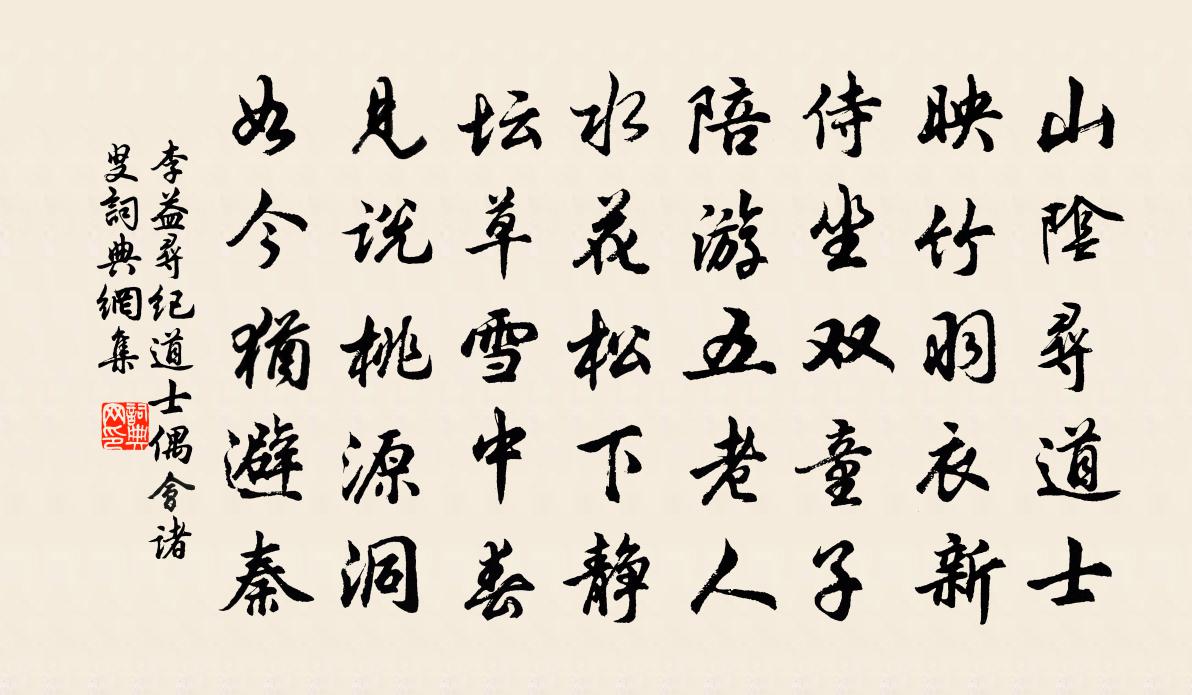 山陰尋道士
映竹羽衣新
侍坐双童子
陪游五老人
水花松下静
坛草雪中春
见说桃源洞
如今犹避秦
李益尋纪道士偶會诸
叟詞典網集
詞典
网印